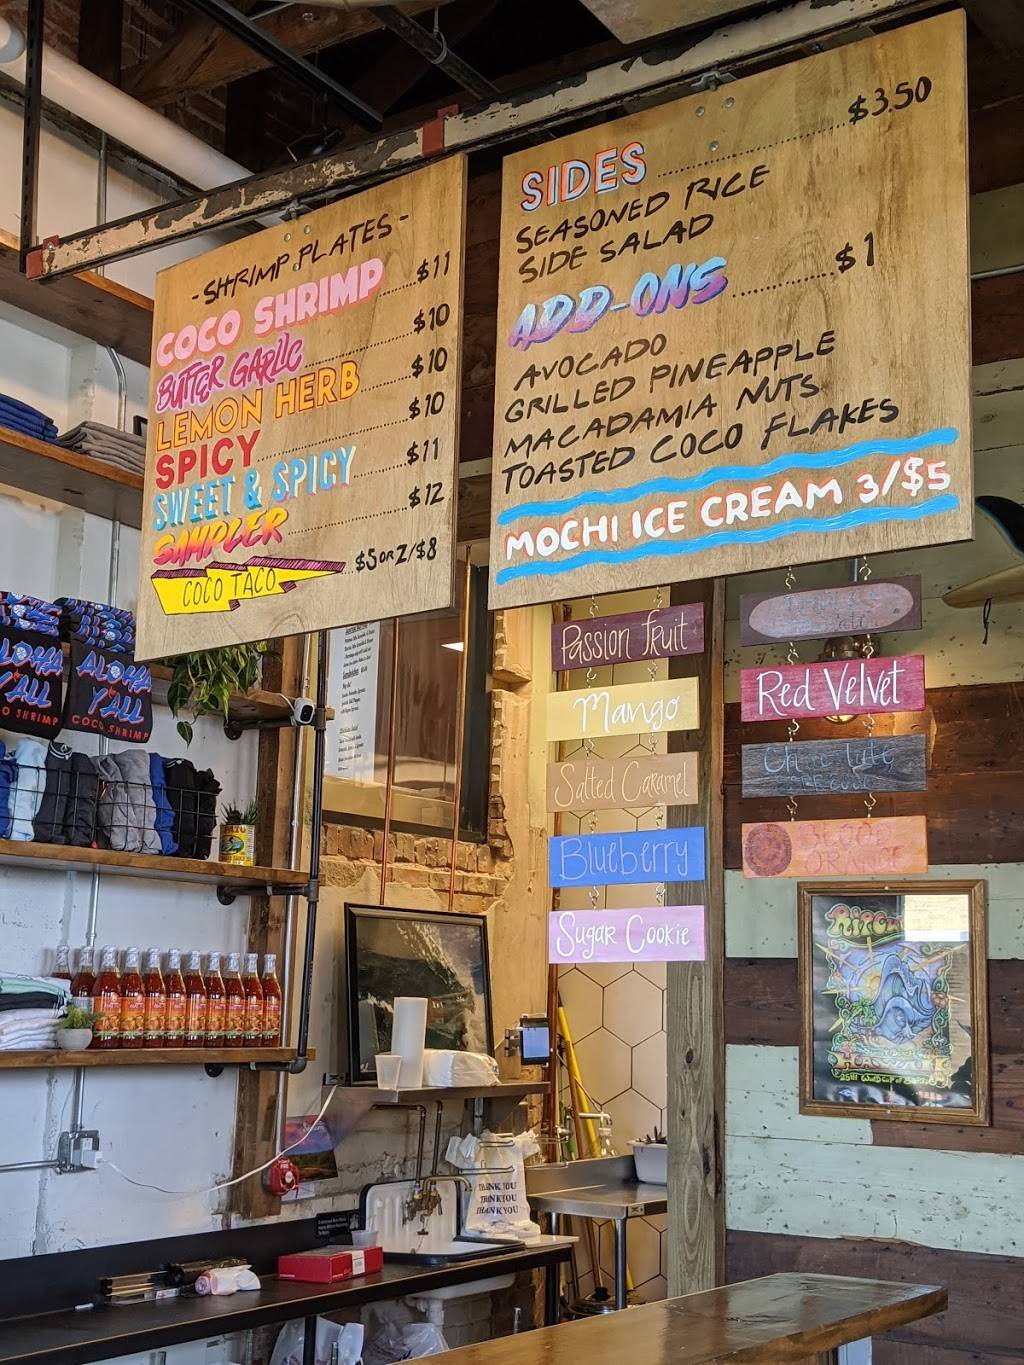 - SHRIMP PLATES -
COCO SHRIMP $11
BUTTER GARLIC $10
LEMON HERB $10
SPICY $10
SWEET & SPICY $11
SAMPLER $12
COCO TACO $5 OR 2/$8
SIDES $3.50
SEASONED RICE
SIDE SALAD
ADD-ONS $1
AVOCADO
GRILLED PINEAPPLE
MACADAMIA NUTS
TOASTED COCO FLAKES
MOCHI ICE CREAM 3/$5
Passion fruit
Mango
Salted Caramel
Blueberry
Sugar Cookie
Red Velvet
BLOOD
ORANGE
ALOHA
Y'ALL
O SHRIMP
ALOHA
Y'ALL
COCO SHRIMP
THANK YOU
THANK YOU
THANK YOU